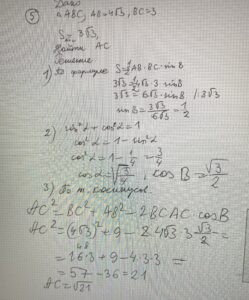 ⑤ Дано
△ABC, AB=4√3, BC=3
S = 3√3,
Найти AC
Решение
1) По формуле S=½AB·BC·sinB
3√3=½4√3·3 sinB
3√3=6√3·sinB |:3√3
sinB=3√3/6√3=1/2
2) sin²α+cos²α=1
cos²α=1-sin²α
cos²α=1-1/4=3/4
cosα=√3/4, cosB=√3/2
3) По т. косинусов.
AC²=BC²+AB²-2BCAC·cosB
AC²=(4√3)²+9-2·4√3·3 √3/2=
48
=16·3+9-4·3·3=
=57-36=21
AC=√21